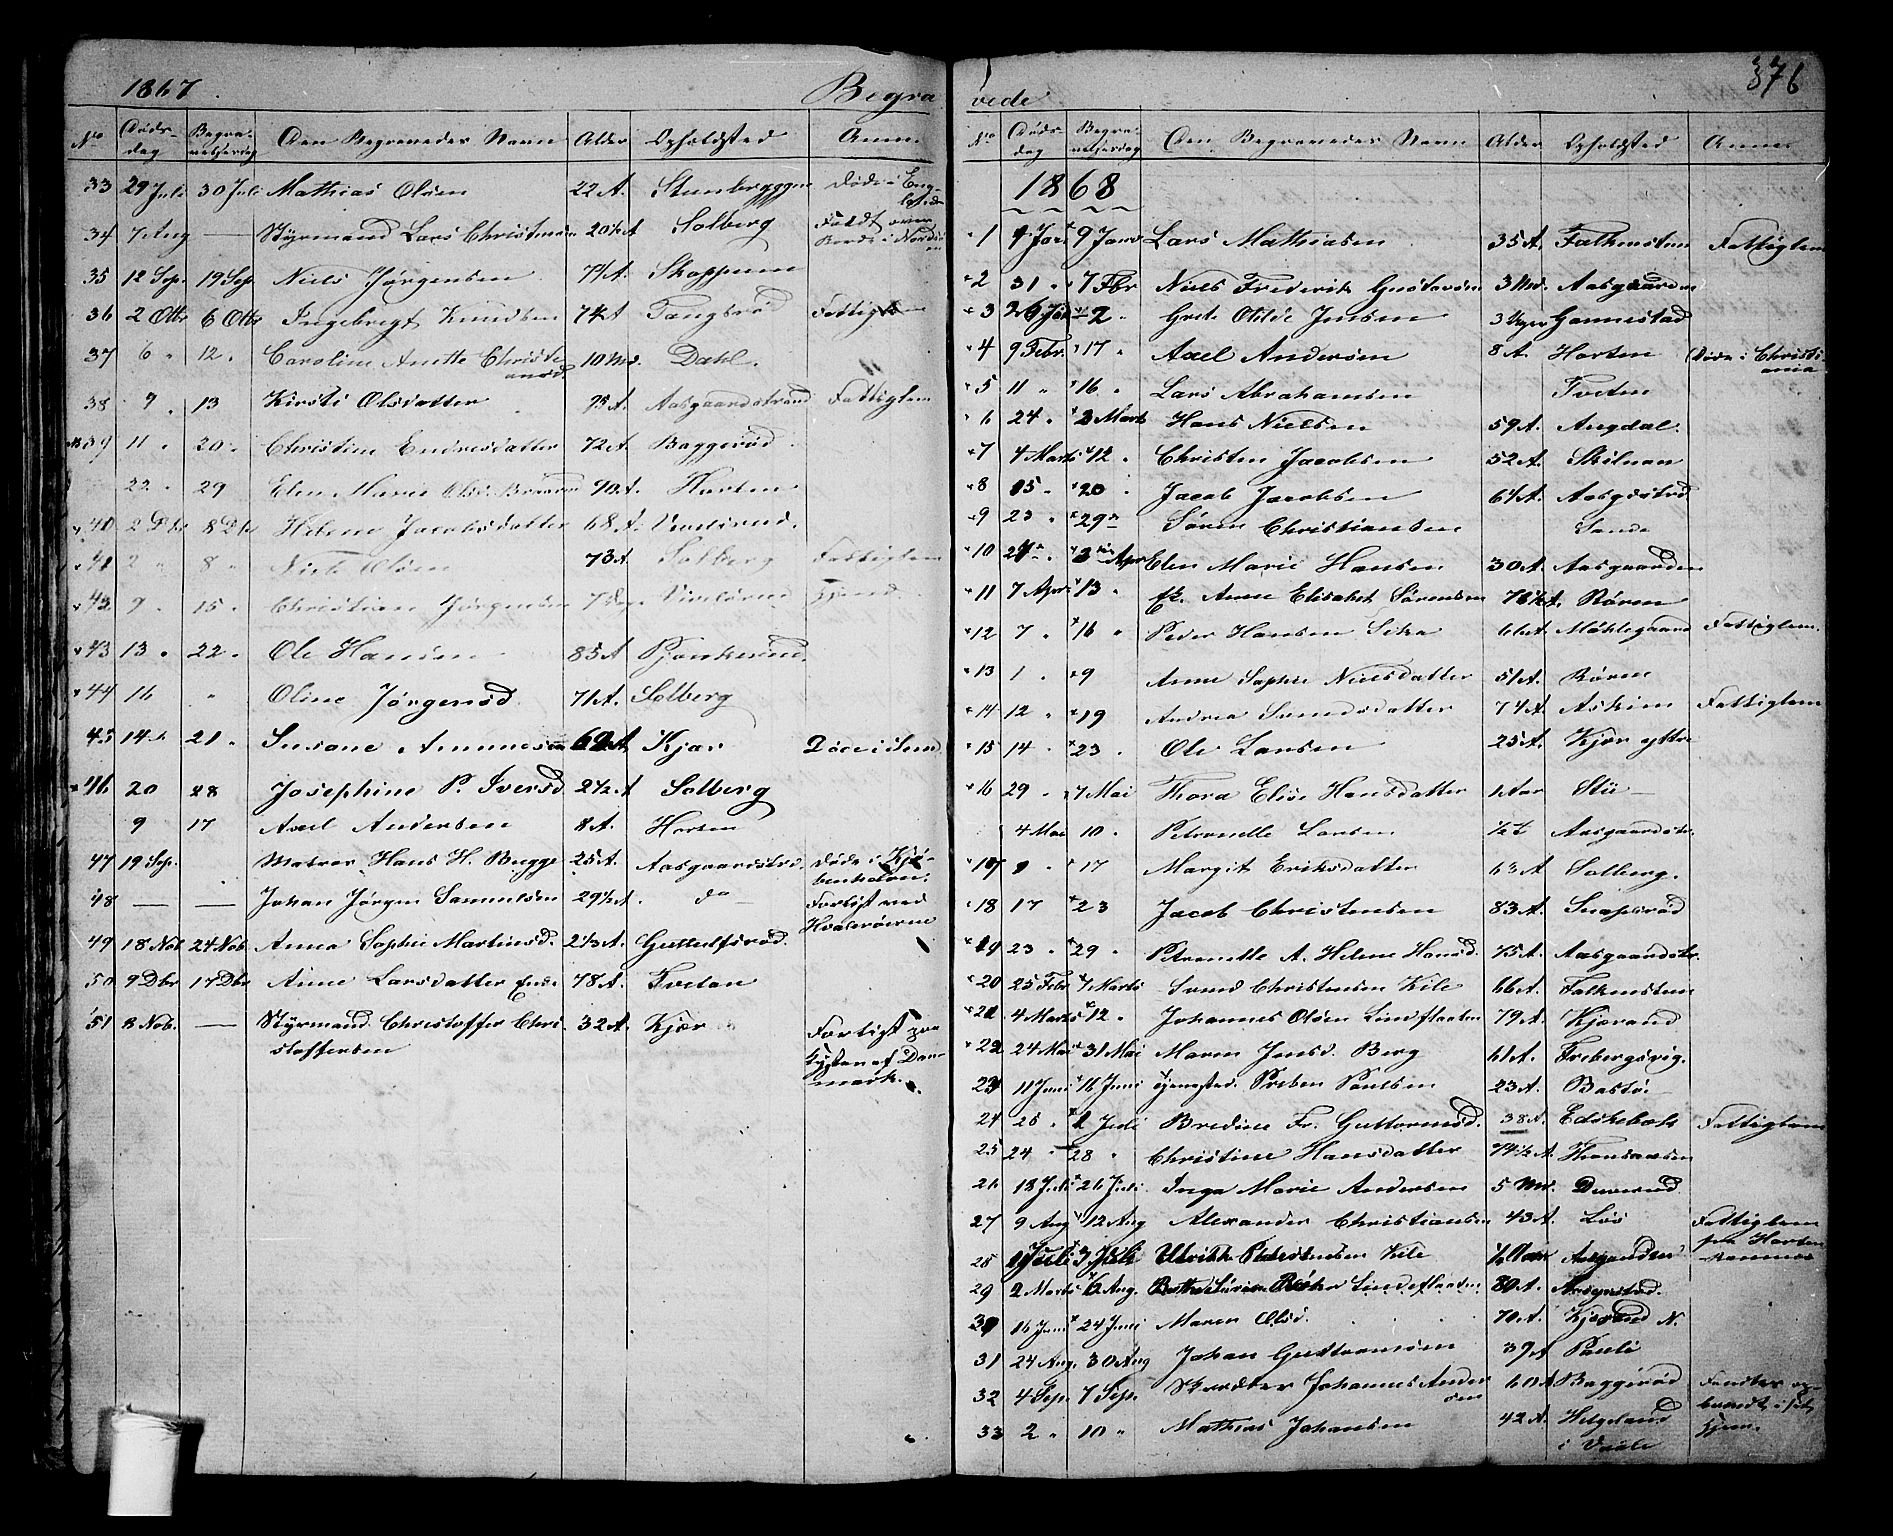 1867 Begra
No Døds- Begra- Den Begravedes Navn Alder Opholdsted Anm.
dag velsesdag
33 29 Juli 30 Juli Mathias Olsen 22 A. Stenbryggen Døde i Eng-
land
34 7 Aug — Styrmand Lars Christensen 20½ A. Solberg Faldt over
Bord i Nordsøen
35 12 Sep. 19 Sep. Niels Jørgensen 74 A. Skoppum
36 2 Otbr 6 Otbr Ingebregt Knudsen 74 A Tangsrød Fattiglem
37 6 " 12 " Caroline Anette Christi-
ansd. 10 Md. Dahl.
38 9 " 13 Kirsti Olsdatter 95 A. Aasgaardstrand Fattiglem
39 11 " 20 " Christine Endresdatter 72 A. Baggerød
22 " 29 Elen Marie Olsd. 90 A. Horten
40 2 Dbr 8 Dbr Helene Jacobsdatter 68 A.
41 2 " 8 " Niels Olsen 73 A. Solberg Fattiglem
42 9 " 15 " Christian Jørgensen 7 Dage
43 13 " 22 " Ole Hansen 85 A
44 16 " Oline Jørgensd. 71 A. Solberg
45 14 21 " Susane Amundsen 69 A. Kjær
46 20 28 Josephine P. Iversd 2½ A Solberg
9 17 Axel Andersen 8 A. Horten
47 19 Sep. Matros Hans H. Bugge 25 A. Aasgaardstrd. Døde i Kjø-
benhavn.
48 — — Johan Jørgen Samuelsen 29½ A. do Forliist ved
Hvaløerne
49 18 Nob. 24 Nob. Anna Sophie Martinsd. 2 1/3 A. Guttulfsrød.
50 9 Dbr 17 Dbr Anne Larsdatter Enke 78 A. Tveten
51 8 Nob. — Styrmand Christoffer Chri-
stoffersen 32 A. Kjær Forliist paa
Kysten af Dan-
mark.
vede 376
No Døds- Begra- Den Begravedes Navn Alder Opholdsted Anm
dag velsesdag
1868
1 9 Janr Lars Mathiasen 35 A. Falkensten Fattiglem
2 31 " 7 Fbr Niels Frederik Gustavsen 3 Md. Aasgaarden
3 26 Jan 2 " Grete Otilde Jensen 3 Uger Gannestad
4 9 Febr. 17 " Axel Andersen 8 A. Horten Døde i Christi-
ania
5 11 " 16 " Lars Abrahamsen Tveten
6 24 " 2 Marts Hans Nielsen 59 A. Augdal.
7 4 Marts 12 " Christen Jacobsen 52 A.
8 15 " 20 " Jacob Jacobsen 64 A. Aasgdstrd
9 23 " 29 " Søren Christiansen Sande
10 27 " Apr Elen Marie Hansen 30 A. Aasgaarden
11 7 Apri 13 " Anne Elisabet Sørensen 78½ A. Røren
12 7 " 16 " Peder Hansen 66 A. Møklegaard Fattiglem.
13 1 " 9 Anne Sophie Nielsdatter 51 A. Røren
14 12 " 19 Andrea Svendsdatter 74 A. Askim Fattiglem
15 14 " 23 " Ole Larsen 25 A. Kjær yttre
16 29 " 7 Mai Thora Elise Hansdatter 1 Aar
4 Mai 10 " Petronelle Larsen Aasgaardstr.
17 9 " 17 Margit Eriksdatter 63 A. Solberg.
18 17 " 23 Jacob Christensen 83 A. Snapsrød
19 23 " 29 " Petronelle A. Helene Hansd. 75 A. Aasgaardstr.
20 25 Febr 7 Marts Svend Christensen Kile 66 A. Falkensten
21 4 Marts 12 " Johannes Olsen Lindflaaten 79 A. Kjærand
22 24 Mai 31 Mai Maren Jensd. Berg 61 A. Frebergsvig.
23 11 Juni 16 Juni Preben Poulsen 23 A. Bastø.
24 25 " 2 Juli Bredine Fr. Guttormsd. 38 A. Edskebæk Fattiglem
25 24 " 28 " Christine Hansdatter 74½ A.
26 18 Juli 26 Juli Inga Marie Andersen 5 Md.
27 9 Aug 12 Aug Alexander Christiansen 43 A. Løs Fattiglem
fra Horten
28 Juli 3 Juli Kile
29 2 Marts 6 Aug. Lindeflaaten 80 A.
30 16 Juni 24 Juni Maren Olsd. 70 A. Kjærand N.
31 24 Aug. 30 Aug Johan Guttormsen 39 A Pauli
32 4 Sep. 7 Sep. Skrædder Johannes Ander-
sen 60 A Baggerød
33 2 " 10 " Mathias Johansen 42 A. Helgeland
i Vaale